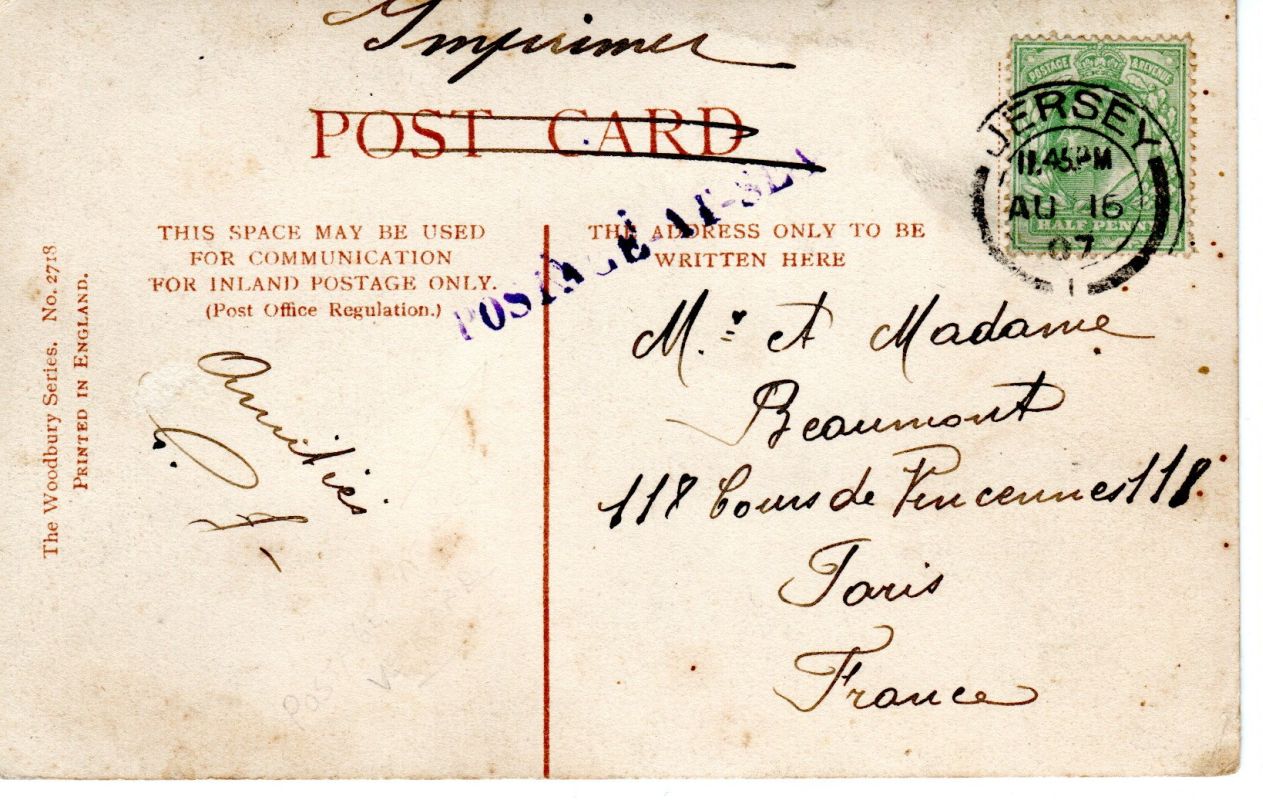 Imprimer
POST CARD
POSTAGE-AT-SEA
POSTAGE & REVENUE
HALF PENNY
JERSEY
11.45PM
AU 16
07
1
THIS SPACE MAY BE USED
FOR COMMUNICATION
FOR INLAND POSTAGE ONLY.
(Post Office Regulation.)
THE ADDRESS ONLY TO BE
WRITTEN HERE
The Woodbury Series. No. 2718
PRINTED IN ENGLAND.
Amitiés
M.r et Madame
Beaumont
118 Cours de Vincennes 118
Paris
France